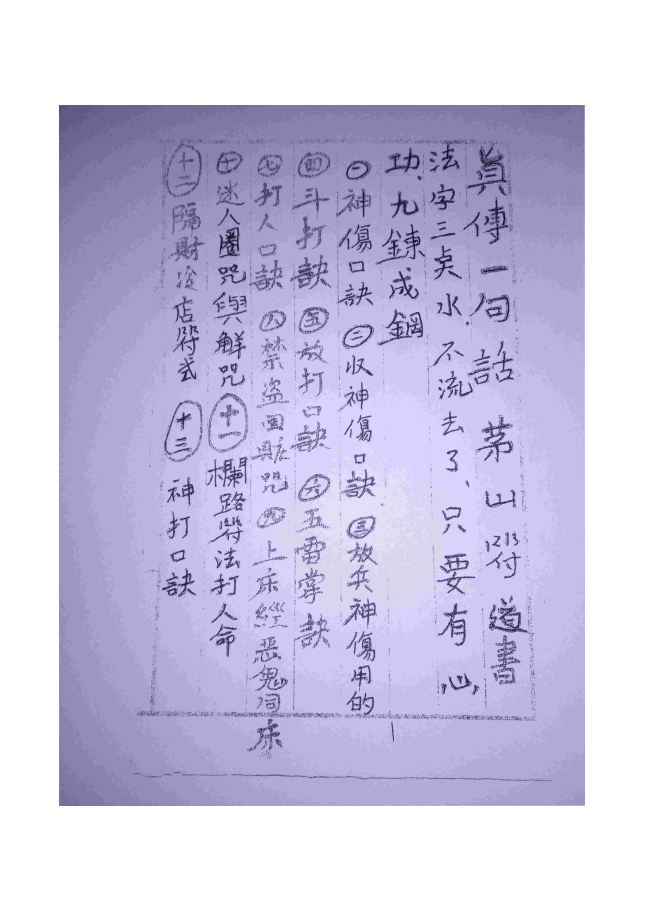 真傳一句話 茅山符道書
法字三点水.不流去了、只要有心,
功、九鍊成鋼
㊀神傷口訣 ㊁收神傷口訣 ㊂放兵神傷用的
㊃斗打訣 ㊄放打口訣 ㊅五雷掌訣
㊆打人口訣 ㊇禁盜回賍咒 ㊈上床經惡鬼同床
㊉迷人圈咒與解咒 十一 欄路符法打人命
十二 隔財 店符式 十三 神打口訣